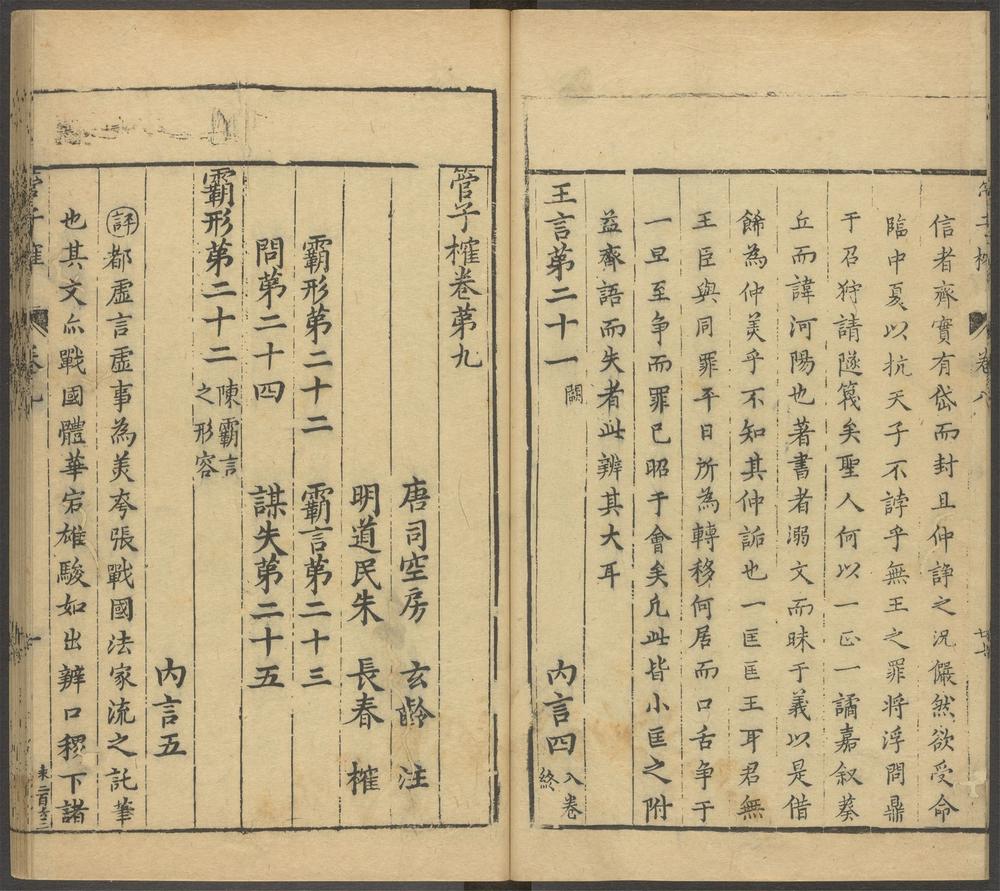 信者齊實有岱而封且仲諍之況儼然欲受命
臨中夏以抗天子不誖乎無王之罪將浮問鼎
于召狩請隧篾矣聖人何以一正一譎嘉叙葵
丘而諱河陽也著書者溺文而昧于義以是借
餙為仲美乎不知其仲詬也一匡匡王耳君無
王臣與同罪平日所為轉移何居而口舌争于
一旦至争而罪已昭于會矣凡此皆小匡之附
益齊語而失者此辨其大耳
王言第二十一 闕 內言四 八卷終
管子榷卷第九
唐司空房 玄齡 注
明道民朱 長春 榷
霸形第二十二 霸言第二十三
問第二十四 謀失第二十五
霸形第二十二 陳霸言之形容
內言五
評都虛言虛事為美夸張戰國法家流之託筆
也其文亦戰國體華宕雄駿如出辨口稷下諸
管子榷 卷九 一